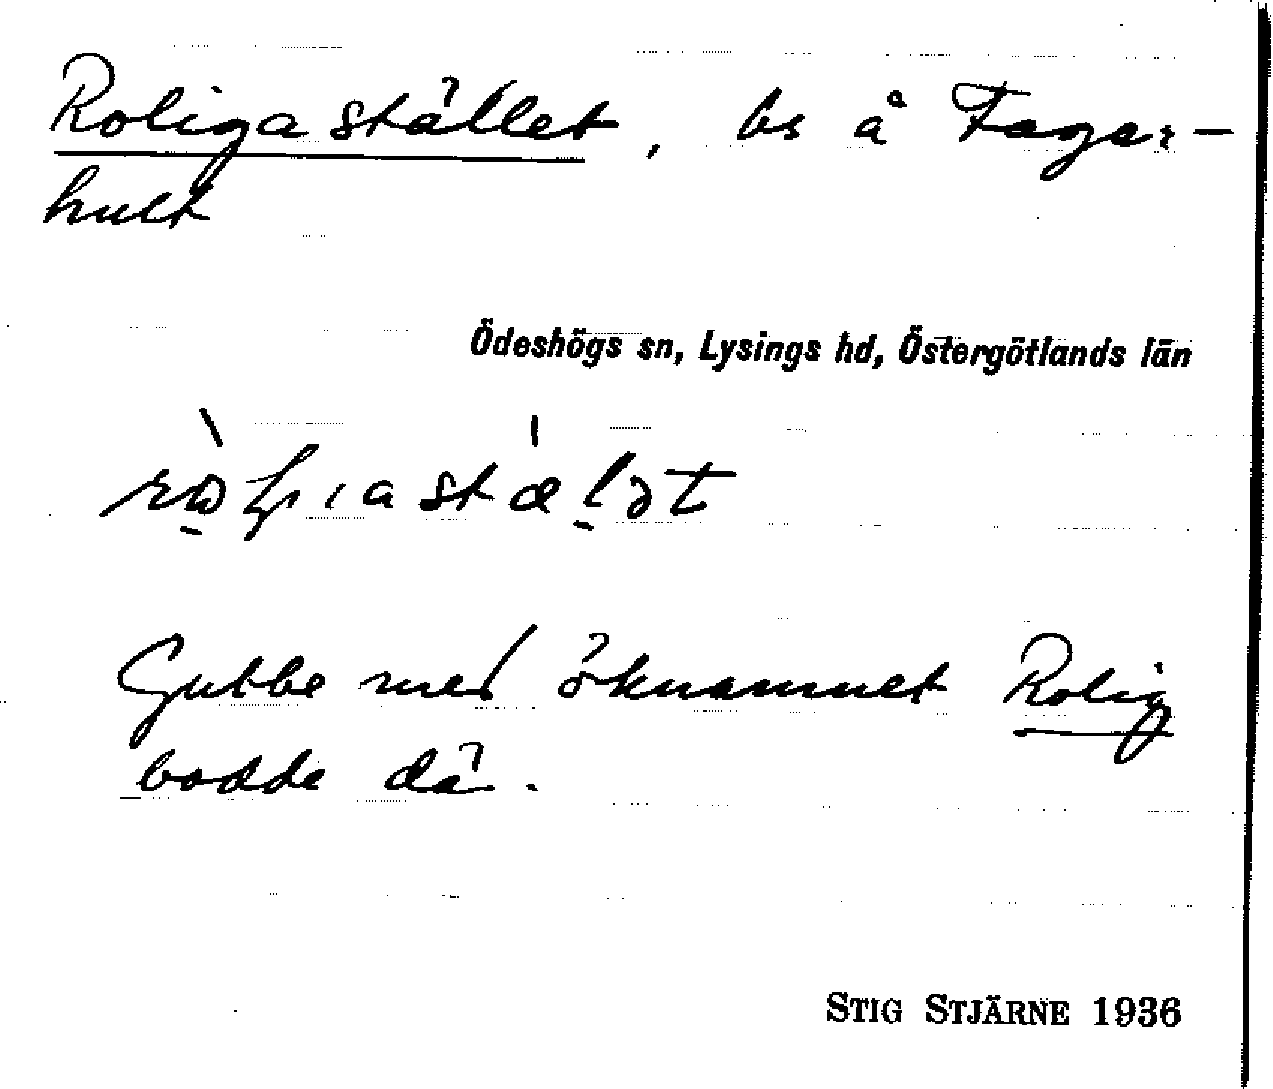 Roligastället, bs å Fager-
hult
Ödeshögs sn, Lysings hd, Östergötlands län
Gubbe med öknamnet Rolig
bodde där.
STIG STJÄRNE 1936